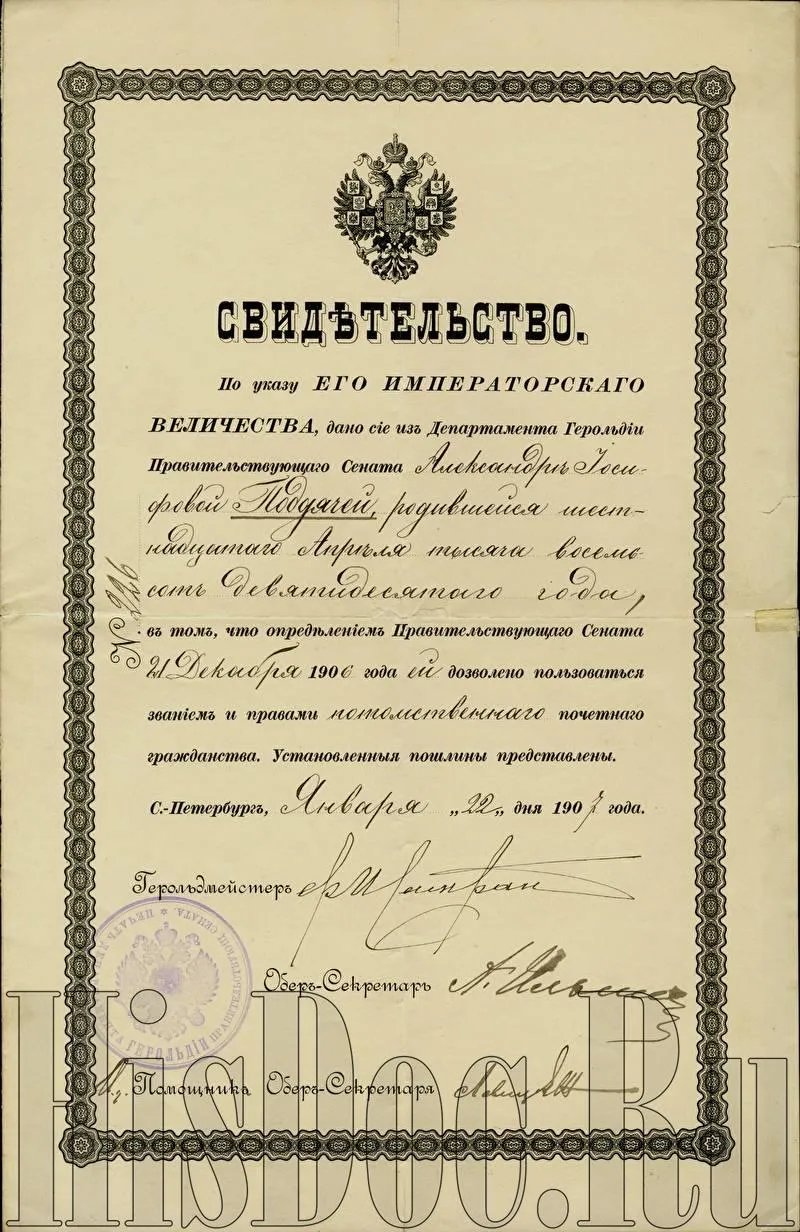 СВИДѢТЕЛЬСТВО.
По указу ЕГО ИМПЕРАТОРСКАГО
ВЕЛИЧЕСТВА, дано сіе изъ Департамента Герольдіи
Правительствующаго Сената Александрѣ Іоси-
фовой Поддячей, родившейся шест-
надцатаго Апрѣля тысяча восемь-
сотъ девятидесятаго года,
№ 226
въ томъ, что опредѣленіемъ Правительствующаго Сената
21 Декабря 1906 года ей дозволено пользоваться
званіемъ и правами потомственнаго почетнаго
гражданства. Установленныя пошлины представлены.
С.-Петербургъ, Января „22„ дня 1907 года.
Герольдмейстеръ
Оберъ-Секретарь
Помощникъ Оберъ-Секретаря
ГЕРОЛЬДІИ ПРАВИТЕЛЬСТВУЮЩ. СЕНАТА. ПЕЧАТЬ
HisDoc.Ru